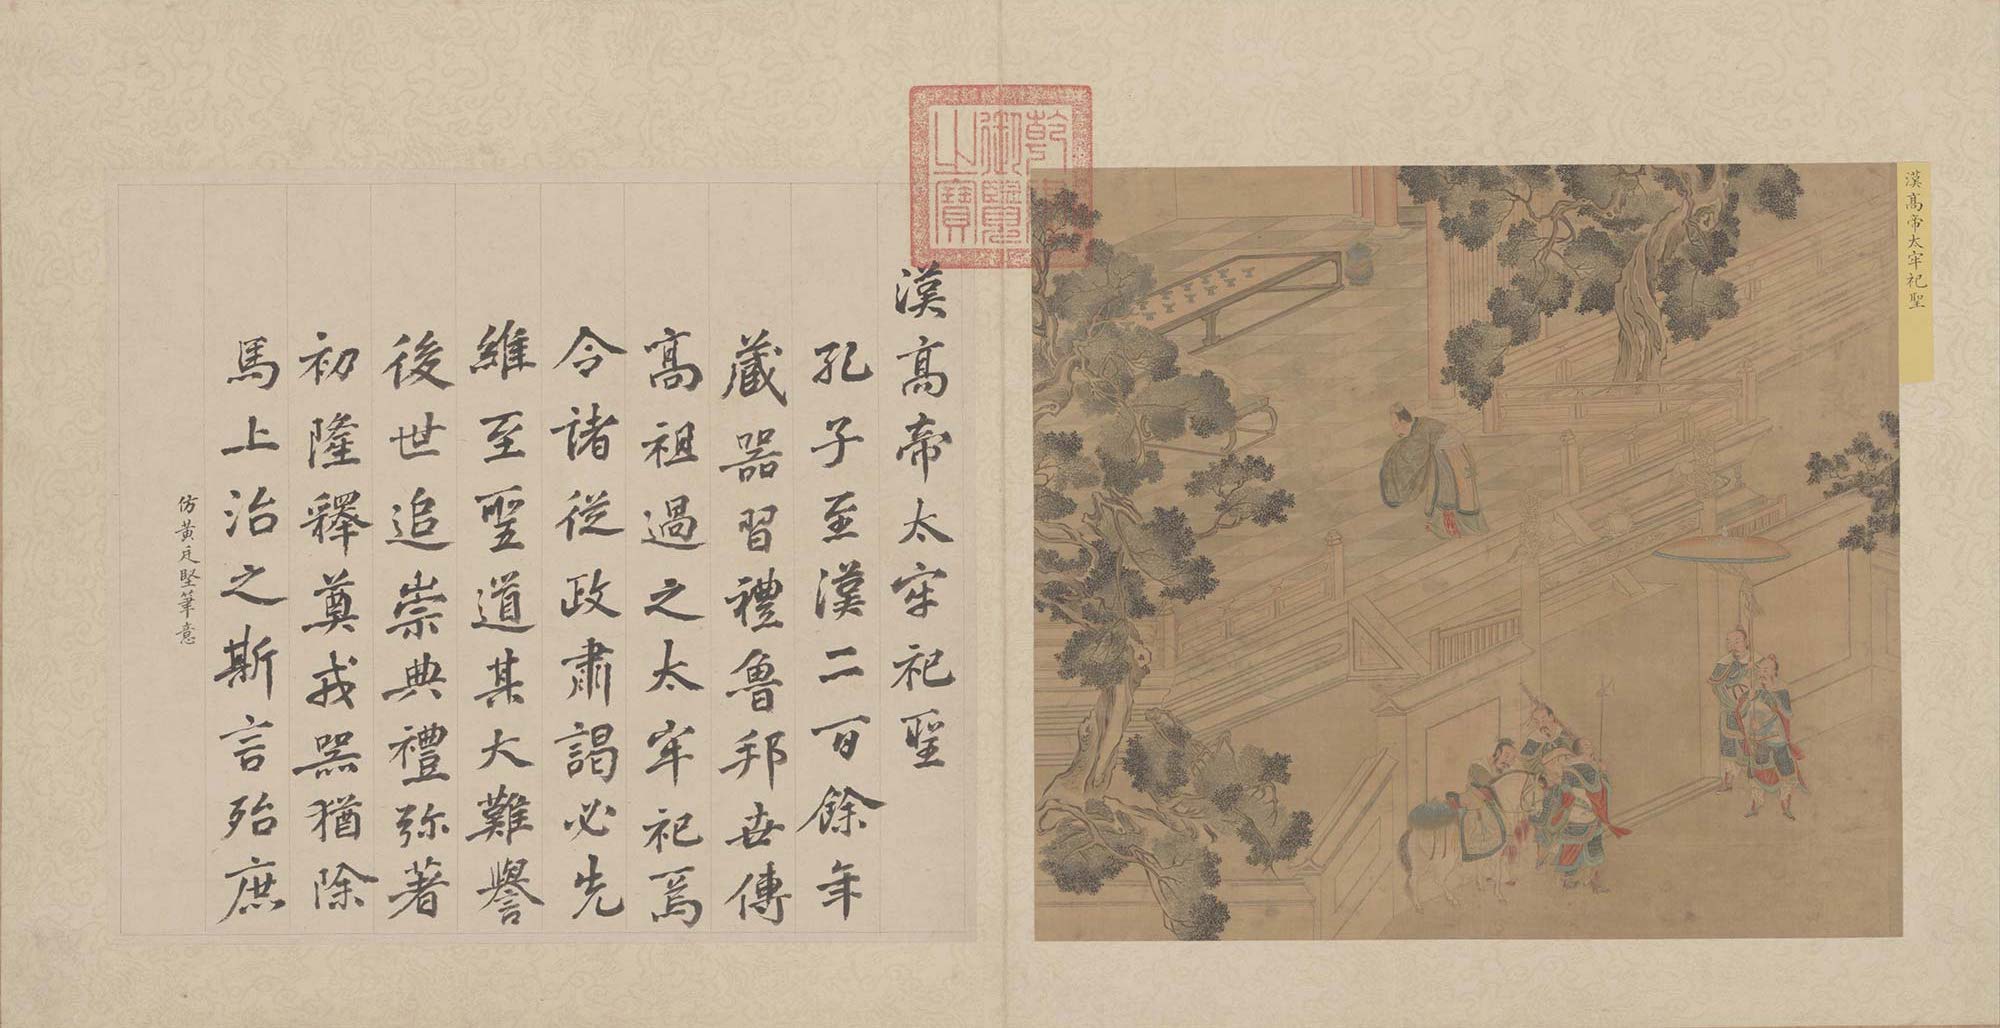 漢髙帝太牢祀聖
乾隆
御覽
之寶
漢髙帝太牢祀聖
孔子至漢二百餘年
藏器習禮魯邦世傳
髙祖過之太牢祀焉
令諸從政肅謁必先
維至聖道其大難譽
後世追崇典禮弥著
初隆釋奠戎器猶除
馬上治之斯言殆庶
仿黃庭堅筆意